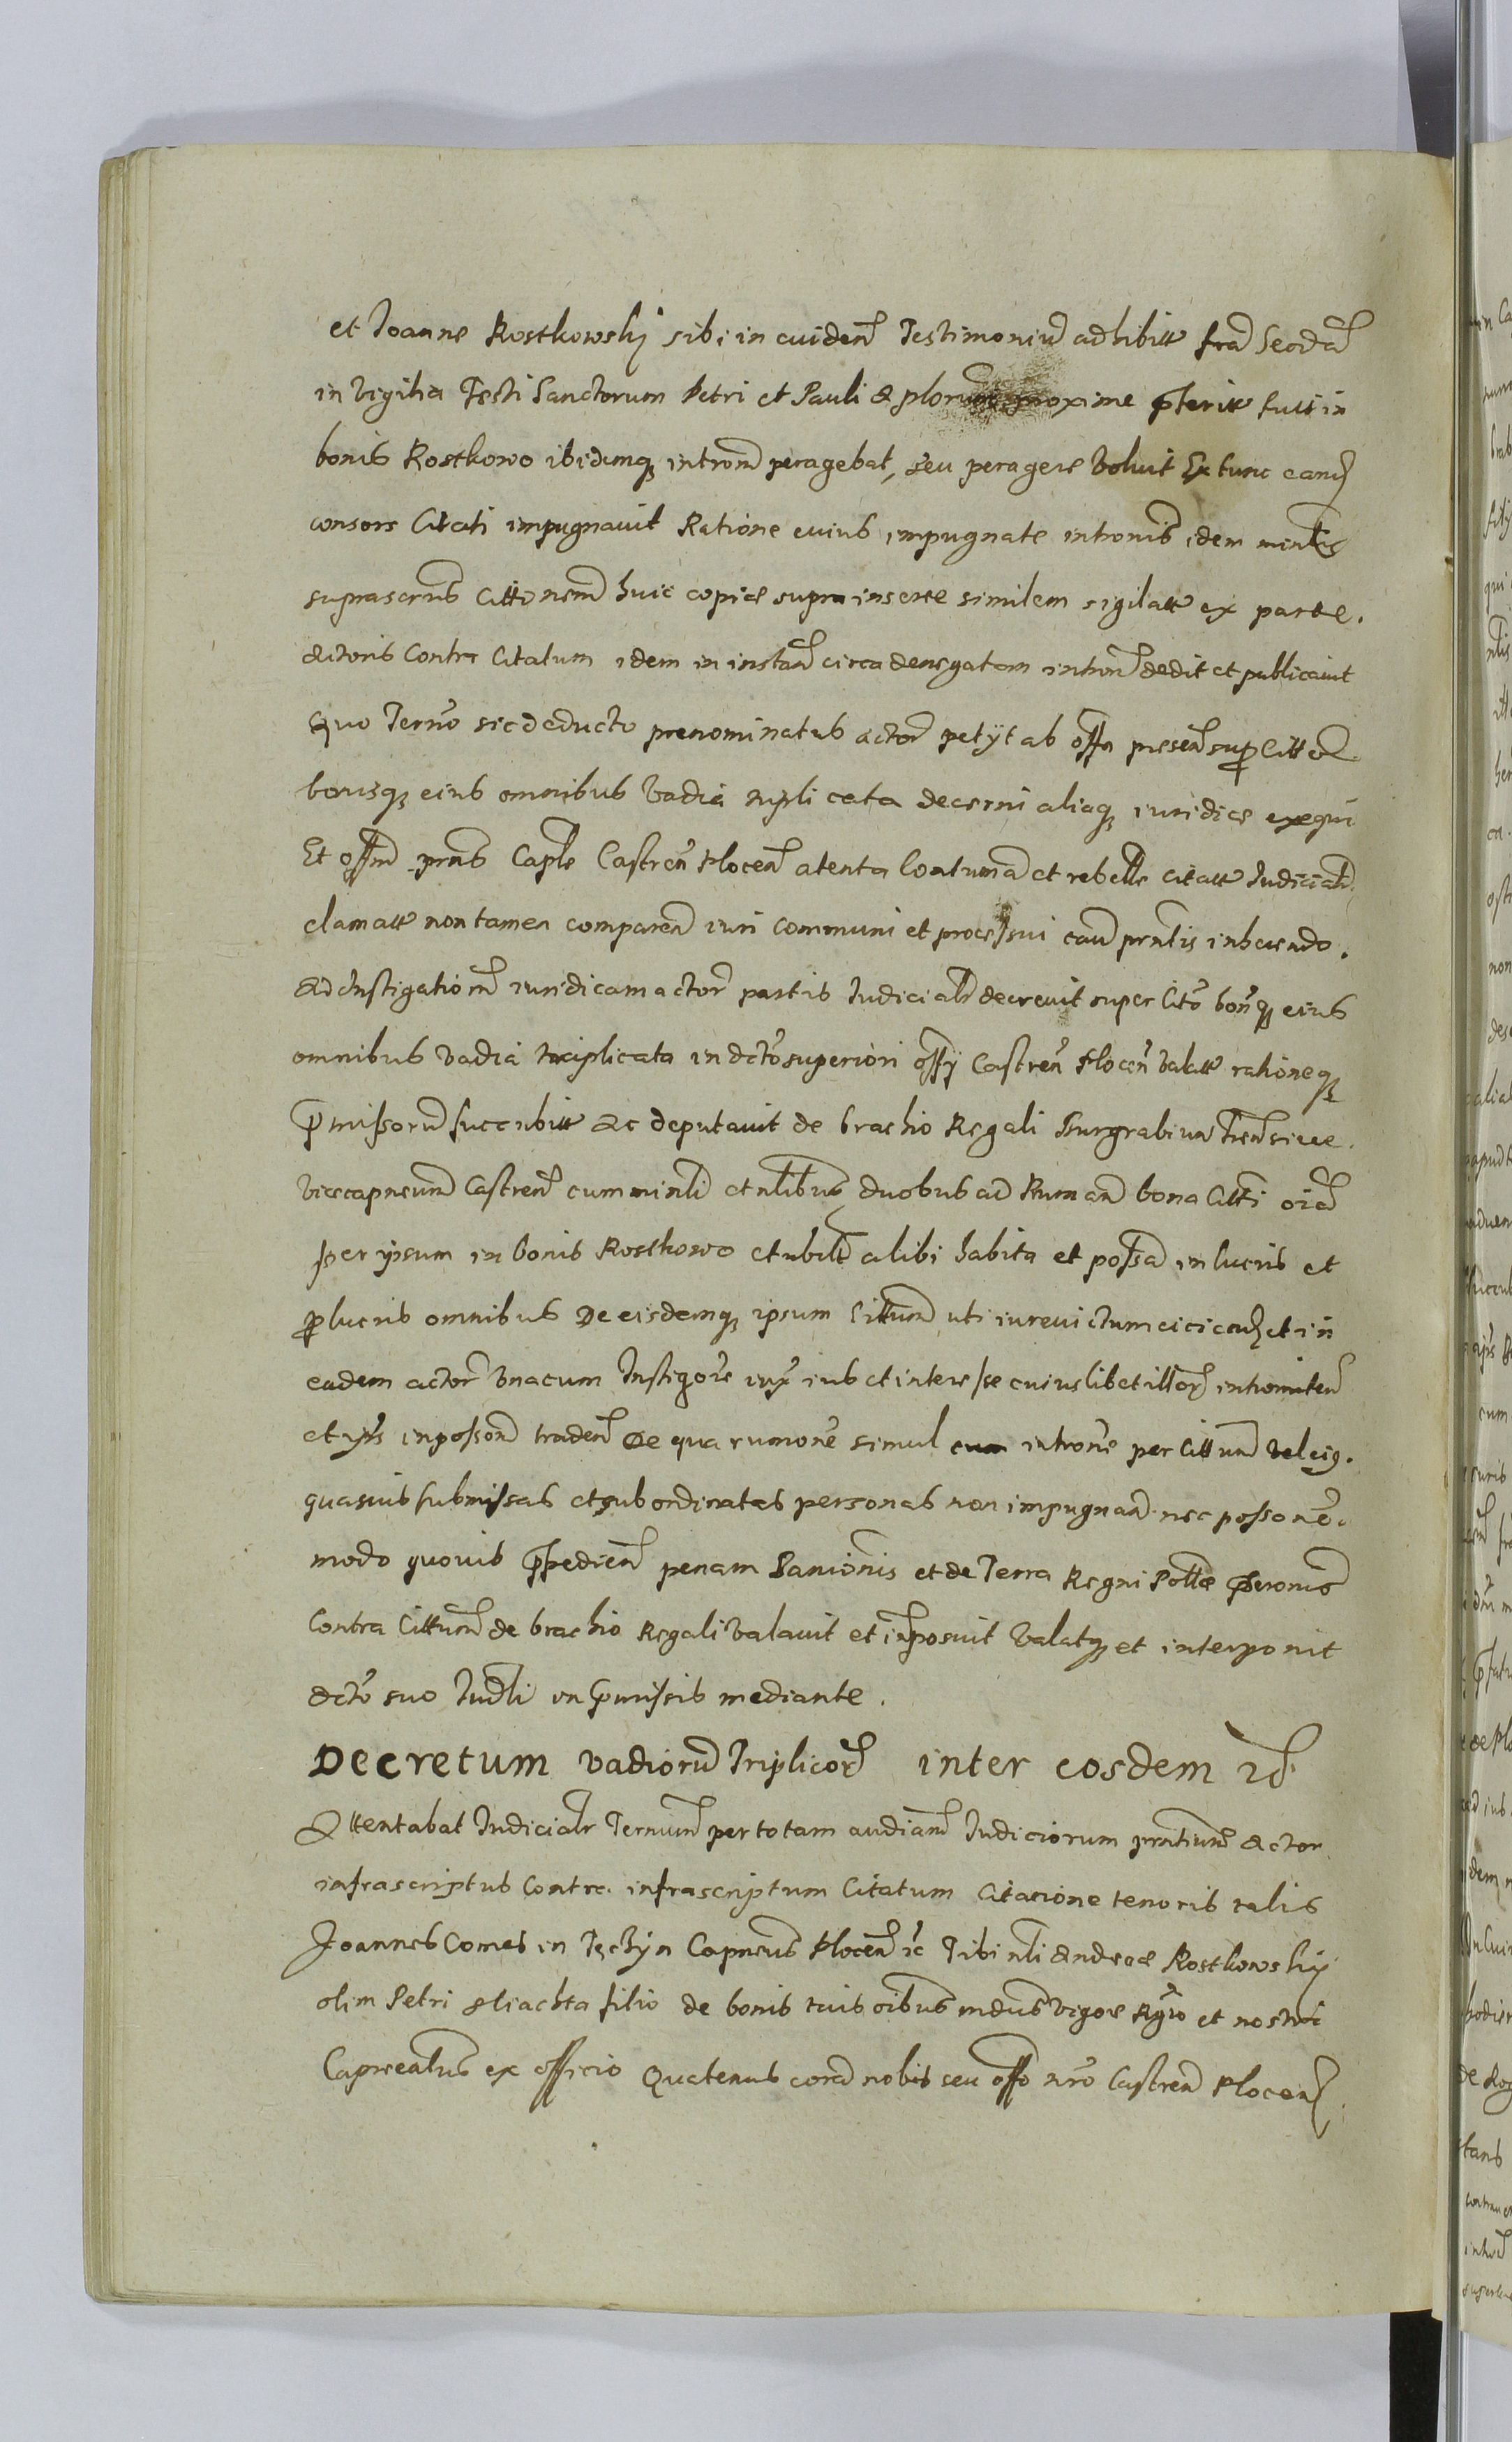 et Joanne Rostkowskj sibi in euiden Testimoniu adhibitt fra Secda
in Vigilia Festi Sanctorum Petri et Pauli Aplorum proxime pterit fuit in
bonis Rostkowo ibidemq introm peragebat, seu peragere Voluit Ex tunc eand
consors Citati impugnauit Ratione cuius impugnate intronis idem minlis
suprascrus Cittonem huic copiae supra inserte similem sigilatt ex parte.
Actoris Contra Citatum idem in instan circa denegatam intron dedit et publicauit
Quo Termo sic deducto prenominatus actor petijt ab offo presen sup Citto
bonisq eius omnibus Vadia triplicata decerni aliaq iuridice exequi
Et offm prns Caple Castren Plocen atenta Contuma et rebelle citatt Judicialr
clamatt non tamen comparen iuri communi et processui cau prntis inherendo.
Ad Instigationem iuridicam actor partis Judicialr decreuit super Citto bonq eius
omnibus Vadia triplicata in dcto superiori offij Castren Plocen Valatt rationeq
pmissoru succubitt Ac deputauit de brachio Regali Burgrabium Tren siue
Vicecapneum Castren cum minli et nlibus duobus ad Ruman bona Citti oia
per ipsum in bonis Rostkowo et ubilt alibi habita et possa in lucris et
p lucris omnibus De eisdemq ipsum Cittum uti iureuictum eiiciend et in
eadem actor Vnacum Instigore iux ius et interesse cuiuslibet illor intromiten
et ipsis in posson traden De qua rumone simul cum introne per Cittum vel eig.
quasuis submissas et subordinatas personas non impugnan nec possone
modo quouis ppedien penam Banionis et de Terra Regni Pollae pscronis
Contra Cittum de brachio Regali Valauit et imposuit Valatq et interponit
dcto suo Judli in pmissis mediante.
Decretum vadioru Triplicor inter eosdem id
Attentabat Judicialr Termum per totam audiam Judiciorum prntium Actor
infrascriptus Contra infrascriptum Citatum Citatione tenoris talis
Joannes Comes in Tęczyn Capneus Plocen ic Tibi nli Andreae Rostkowskij
olim Petri Sliachta filio de bonis tuis oibus mdus Vigore Rgio et nostra
Capnealus ex officio Quatenus cora nobis seu offo nro Castren Plocen